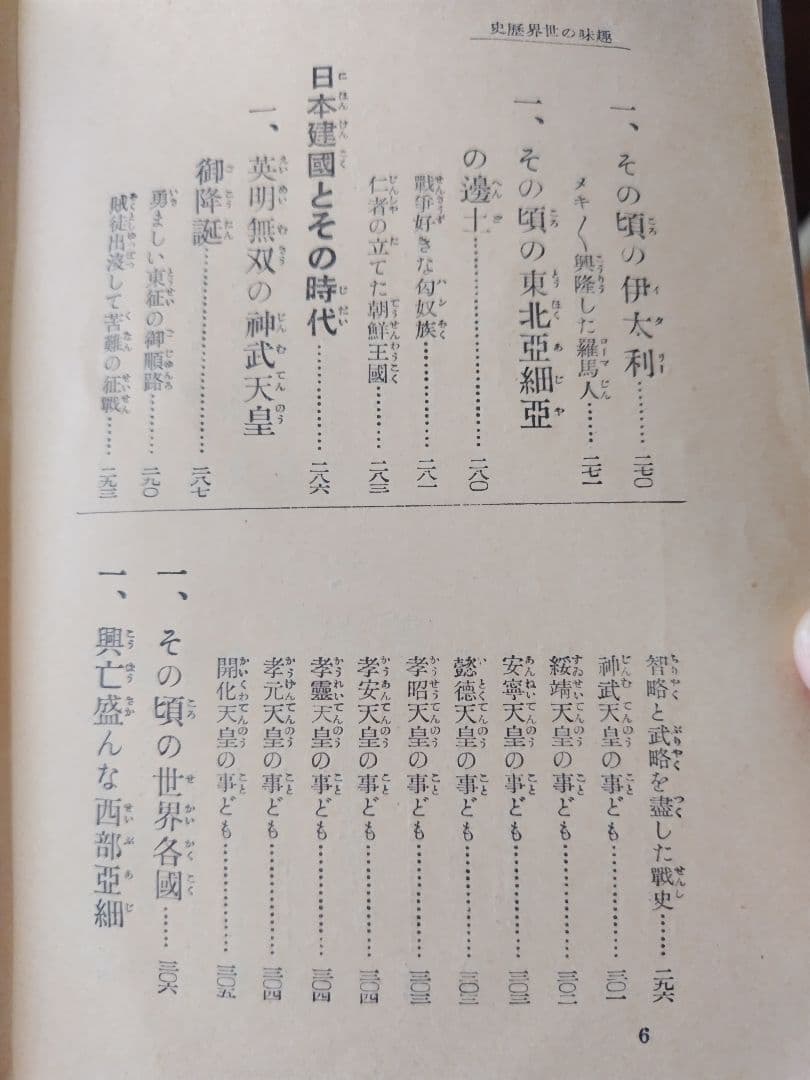 趣味の世界歴史
一、その頃の伊太利…………二七〇
メキ〱興隆した羅馬人………二七一
一、その頃の東北亞細亞
の邊土……………………二八〇
戰爭好きな匈奴族……………二八一
仁者の立てた朝鮮王國…………二八三
日本建國とその時代……………二八六
一、英明無双の神武天皇
御降誕……………………………二八七
勇ましい東征の御順路…………二九〇
賊徒出沒して苦難の征戰………二九三
智略と武略を盡した戰史………二九六
神武天皇の事ども……………三〇一
綏靖天皇の事ども……………三〇二
安寧天皇の事ども……………三〇三
懿德天皇の事ども……………三〇三
孝昭天皇の事ども……………三〇三
孝安天皇の事ども……………三〇四
孝靈天皇の事ども……………三〇四
孝元天皇の事ども……………三〇四
開化天皇の事ども……………三〇五
一、その頃の世界各國………三〇六
一、興亡盛んな西部亞細
6